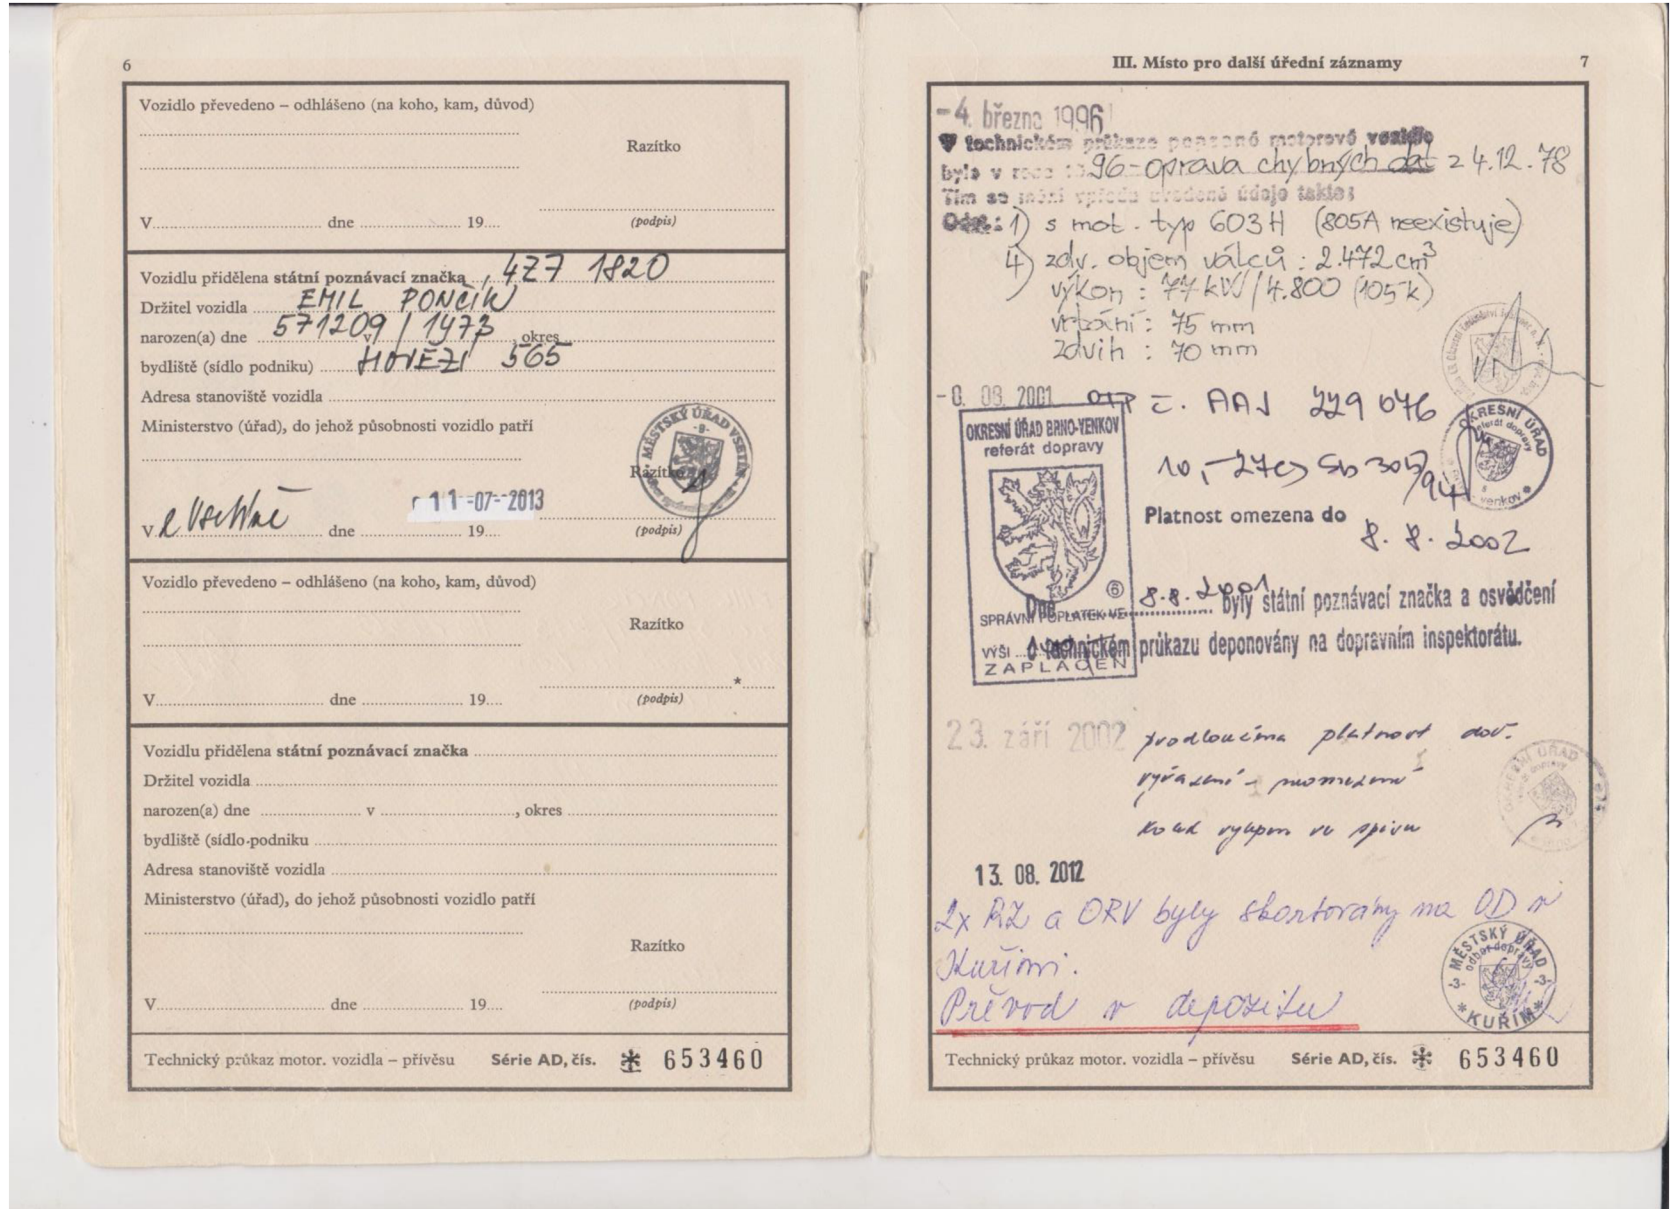 6
Vozidlo převedeno – odhlášeno (na koho, kam, důvod)
Razítko
V dne 19
(podpis)
Vozidlu přidělena státní poznávací značka 4Z7 1820
Držitel vozidla EMIL PONČÍK
narozen(a) dne 571209/1473 v , okres
bydliště (sídlo podniku) HOVĚZÍ 565
Adresa stanoviště vozidla
Ministerstvo (úřad), do jehož působnosti vozidlo patří
MĚSTSKÝ ÚŘAD VSETÍN
Razítko
11-07-2013
V dne 19
(podpis)
Vozidlo převedeno – odhlášeno (na koho, kam, důvod)
Razítko
V dne 19
(podpis)
Vozidlu přidělena státní poznávací značka
Držitel vozidla
narozen(a) dne v , okres
bydliště (sídlo podniku
Adresa stanoviště vozidla
Ministerstvo (úřad), do jehož působnosti vozidlo patří
Razítko
V dne 19
(podpis)
Technický průkaz motor. vozidla – přívěsu Série AD, čís. 653460
III. Místo pro další úřední záznamy 7
-4. března 1996
V technickém průkaze popsané motorové vozidlo
bylo v roce 1996-oprava chybných dat z 4.12.78
Tím se mění vpředu uvedené údaje takto:
Odst.: 1) s mot. typ 603H (805A neexistuje)
4) zdv. objem válců : 2.472 cm³
výkon : 77 kW/4.800 (105 k)
vrtání : 75 mm
zdvih : 70 mm
2001 OTP č. AAJ 229 076
OKRESNÍ ÚŘAD BRNO-VENKOV
referát dopravy
OKRESNÍ ÚŘAD
referát dopravy
venkov
Platnost omezena do
8. 8. 2002
6
Dne 8.8.2001 byly státní poznávací značka a osvědčení
SPRÁVNÍ POPLATEK VE
o technickém průkazu deponovány na dopravním inspektorátu.
VÝŠI
ZAPLACEN
23. září 2002 platnost
13. 08. 2012
2x RZ a ORV byly skartovány na OD v
Kuřimi.
MĚSTSKÝ ÚŘAD
odbor dopravy
-3-
KUŘIM
Převod v depozitu
Technický průkaz motor. vozidla – přívěsu Série AD, čís. 653460